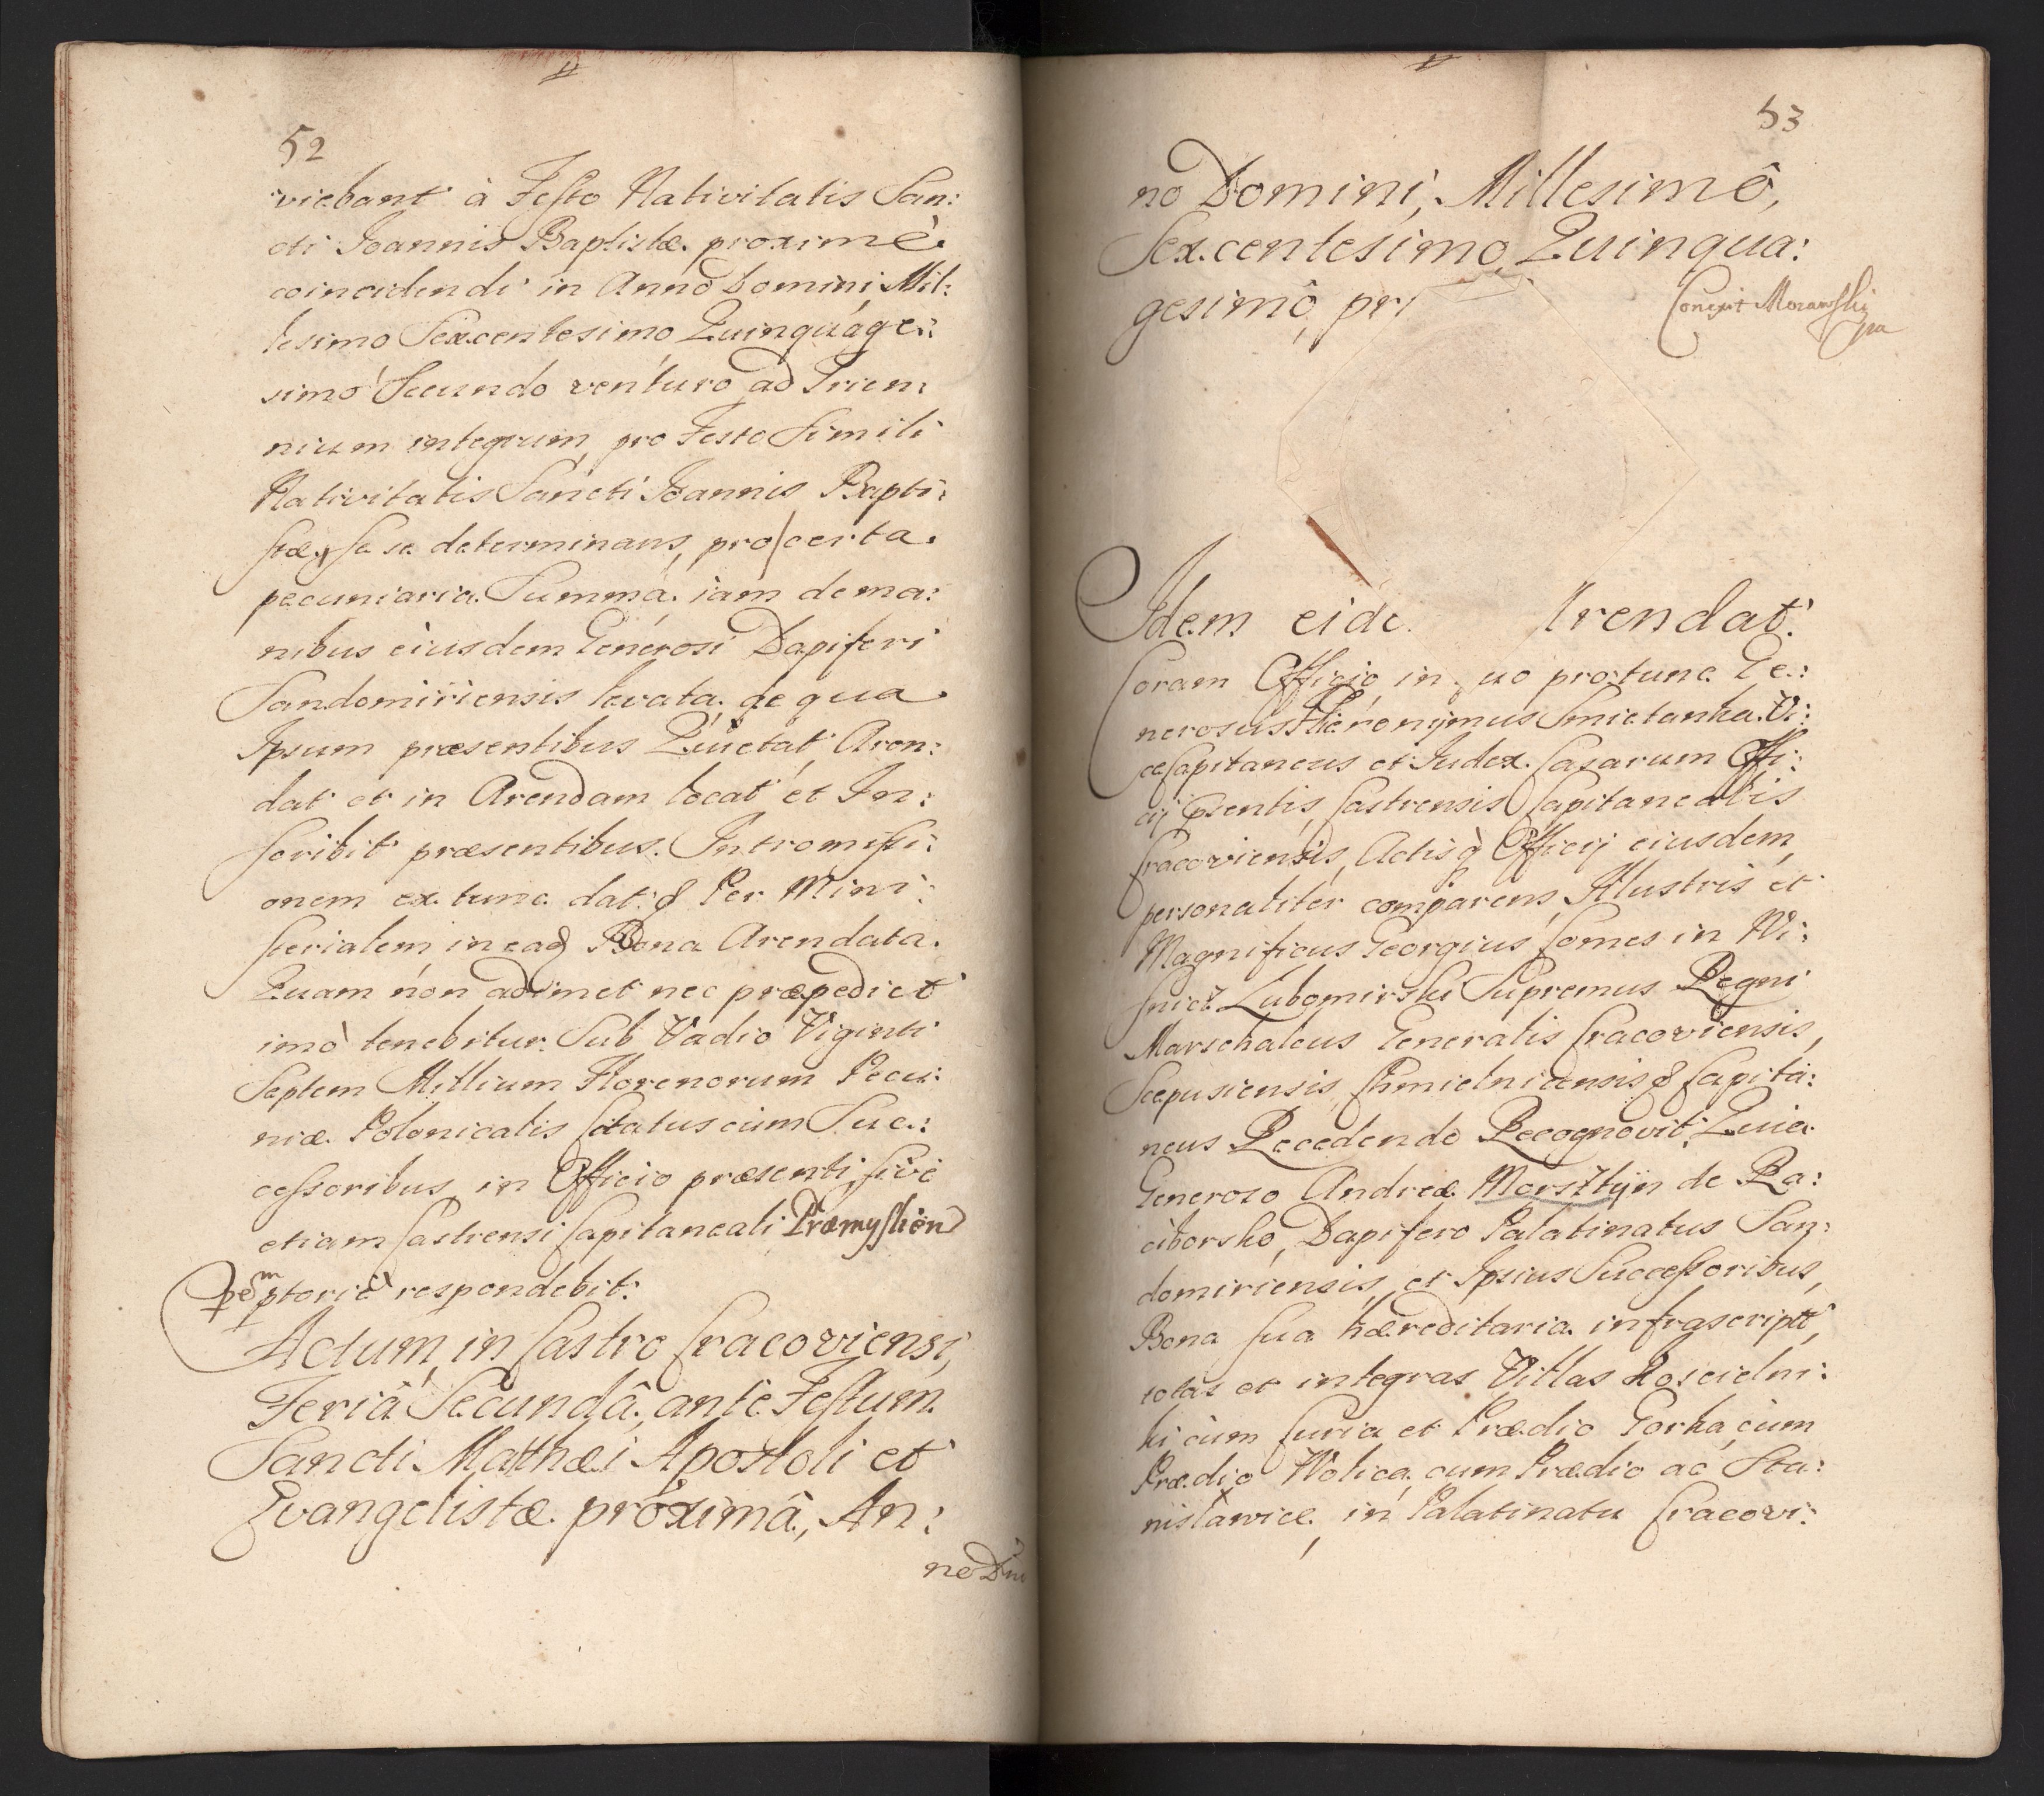 52
viebant à Festo Nativitatis San:
cti Joannis Baptistæ proximè
coincidendi in Anno Domini Mil:
lesimo Sexcentesimo Quinquage:
simo Secundo venturo ad Trien:
nium integrum, pro Festo Simili
Nativitatis Sancti Joannis Bapti:
stæ, se se determinans, pro certa
pecuniaria Summa iam de ma:
nibus eiusdem Generosi Dapiferi
Sandomiriensis levata, de qua
Ipsum præsentibus Quietat, Aren:
dat et in Arendam locat et In:
scribit præsentibus. Intromissi:
onem ex tunc dat Per Mini:
sterialem in ead Bona Arendata.
Quam non adimet nec præpediet
imò tenebitur. Sub Vadio Viginti
Septem Millium Florenorum Pecu:
niæ Polonicalis Citatus cum Suc:
cessoribus in Officio præsenti, sive
etiam Castrensi Capitaneali Præmyslien
pemptoriè respondebit.
Actum in Castro Cracoviensi,
Feriâ Secundâ ante Festum
Sancti Matthæi Apostoli et
Evangelistæ proximâ, An:
no Dni
53
no Domini, Millesimô,
Sexcentesimo, Quinqua:
gesimô, pri
Idem eide Arendat.
Coram Officio, in quo protunc Ge:
nerosus Hieronymus Smietanka Vi:
ceCapitaneus et Judex Causarum Offi:
cij Pṡentis, Castrensis Capitanealis
Cracoviensis, Actisq Officij eiusdem,
personaliter comparens, Illustris et
Magnificus Georgius Comes in Wi:
snicz Lubomirski Supremus Regni
Marschalcus Generalis Cracoviensis,
Scepusiensis, Chmielnicensis Capita:
neus Recedendo Recognovit, Quia
Generoso Andreæ Morsztyn de Ra:
ciborsko, Dapifero Palatinatus San:
domiriensis, et Ipsius Successoribus,
Bona sua hæreditaria infrascript,
totas et integras Villas Koscielni:
ki cum Curia et Prædio Gorka, cum
Prædio Wolica, cum Prædio ac Sta:
nisławice, in Palatinatu Cracovi: